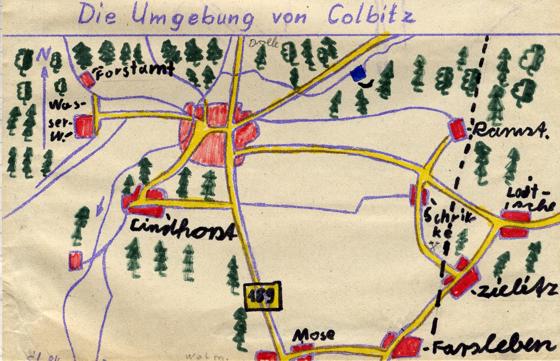 Die Umgebung von Colbitz
N
Dolle
Forstamt
Was-
ser-
W.
Ramst.
Loit-
sche
Schrik-
ke
Lindhorst
Zielitz
189
Mose
Farsleben
Wolm.